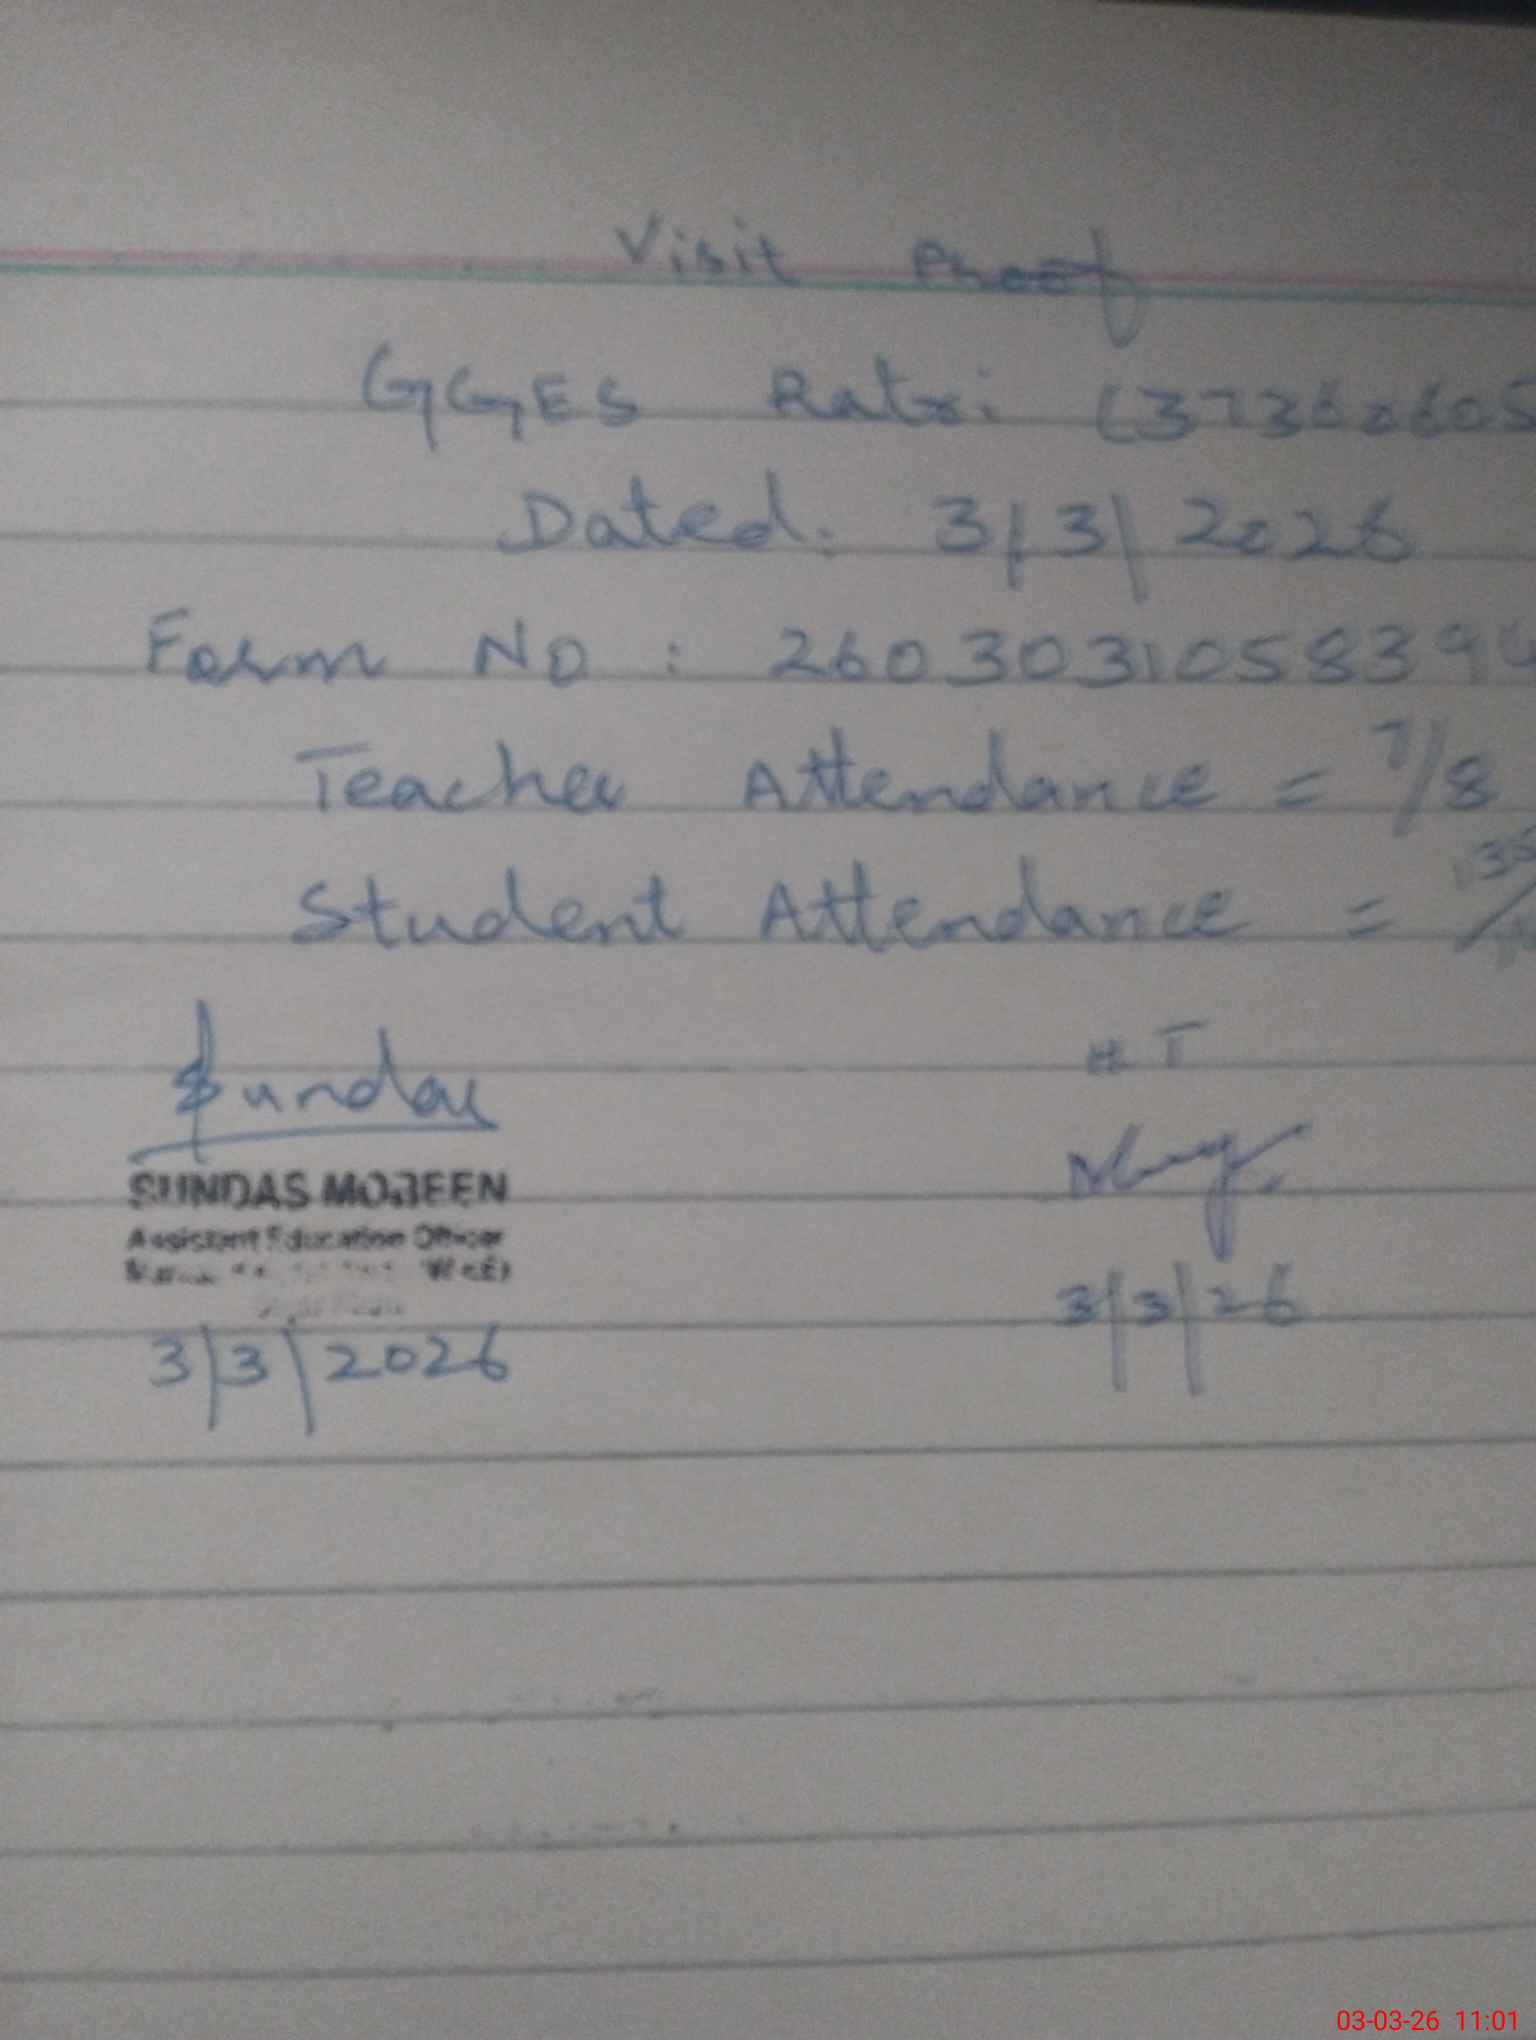 Visit Proof
GGES Ratri (37360605
Dated: 3/3/2026
Form No : 260303105839
Teacher Attendance = 7/8
Student Attendance =
Sundas
H T
SUNDAS MOBEEN
Assistant Education Officer
3/3/26
3/3/2026
03-03-26 11:01